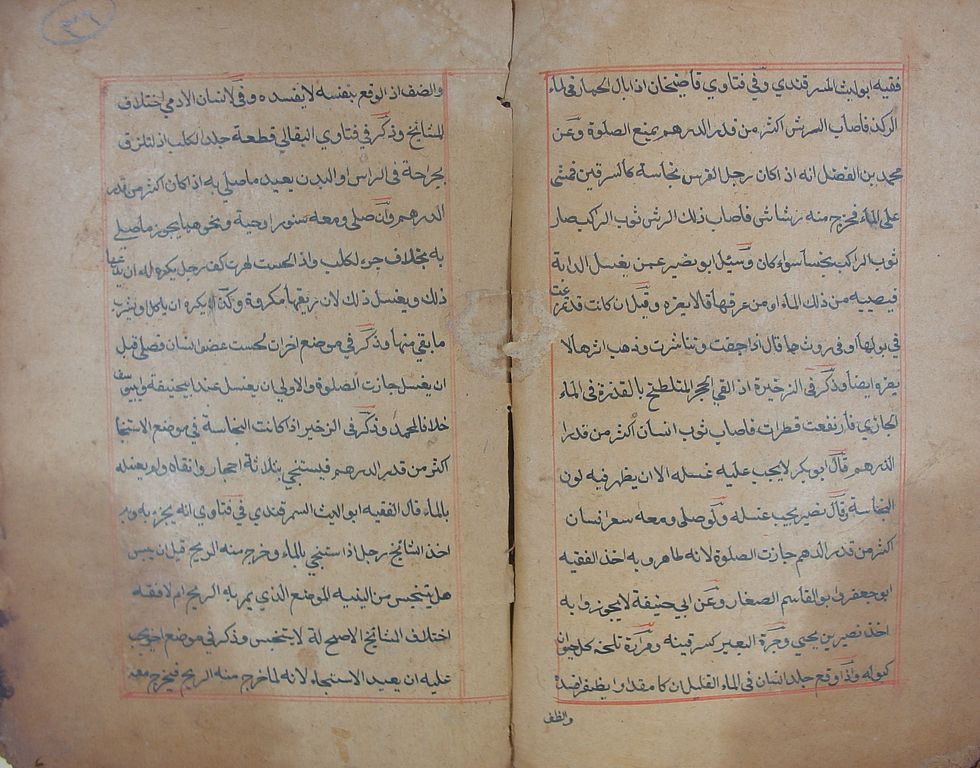 فقيه ابوليث السمرقندي وفي فتاوي قاضيخان اذا بال الحمار في الماء
الراكد فاصاب الرش اكثر من قدر الدرهم يمنع الصلوة وعن
محمد بن الفضل انه اذا كان رجل الفرس نجاسة كالسرقين فمشى
على الماء فخرج منه رشاش فاصاب ذلك الرش ثوب الراكب صار
ثوب الراكب نجسا سواء كان وسئل ابو نصير عمن يغسل الدابة
فيصيبه من ذلك الماء او من عرقها قال لا يضره وقيل ان كانت قد تمرغت
في بولها او في روثها قال اذا جفت وتناثرت وذهب اثرها لا
يضره ايضا وذكر في الذخيرة اذا القي الحجر المتلطخ بالقذرة في الماء
الجاري فارتفعت قطرات فاصاب ثوب انسان اكثر من قدر ا
الدرهم قال ابو بكر لا يجب عليه غسله الا ان يظهر فيه لون
النجاسة وقال نصير يجب غسله ولو صلى ومعه شعر انسان
اكثر من قدر الدهم جازت الصلوة لانه طاهر وبه اخذ الفقيه
ابو جعفر وابو القاسم الصفار وعن ابي حنيفة لا يجوز وا به
اخذ نصير بن يحيى وجرة البعير كسرقينه ومرارة كل حيوان
كبوله واذا وقع جلد انسان في الماء القليل ان كا مقدار ظفر افسده
والظف
والضف اذا لوقع بنفسه لا يفسده وفي لانسان الادمي اختلاف
المشائخ وذكر في فتاوي البقالي قطعة جلد الكلب اذ لتلزق
بجراحة في الراس او البدن يعيد ماصلي به اذا كان اكثر من قدر
الدرهم وان صلى ومعه سنور او حية ونحوهما يجوز ماصلي
به بخلاف جرء لكلب واذ الحست لهرت كف رجل يكره له ان يدعها
ذلك ويغسل ذلك لان ريقها مكروه وكذا يكره ان ياكل ويشرب
ما بقي منها وذكر في موضع اخر ان لحست عضو انسان فصلى قبل
ان يغسل جازت الصلوة والاولى ان يغسل عند ابيحنيفة وابييوسف
خلافا لمحمد وذكر في الذخير اذا كانت النجاسة في موضع الاستنجا
اكثر من قدر الدرهم فيستنجي بثلاثة احجار وانقاه ولم يغسله
بالماء قال الفقيه ابو الليث السمرقندي في فتاوي انه يجزء به وبه
اخذ الشائخ رجل اذا ستنجي بالماء وخرج منه الريح قبل ان يبس
هل يتنجس من اليتيه الموضع الذي يمر به الريح ام لا فقه
اختلف الشائخ الاصح لة لا يتنجس وذكر في موضع اخر يجب
عليه ان يعيد الاستنجاء لانه لما خرج منه الريح فيخرج معه